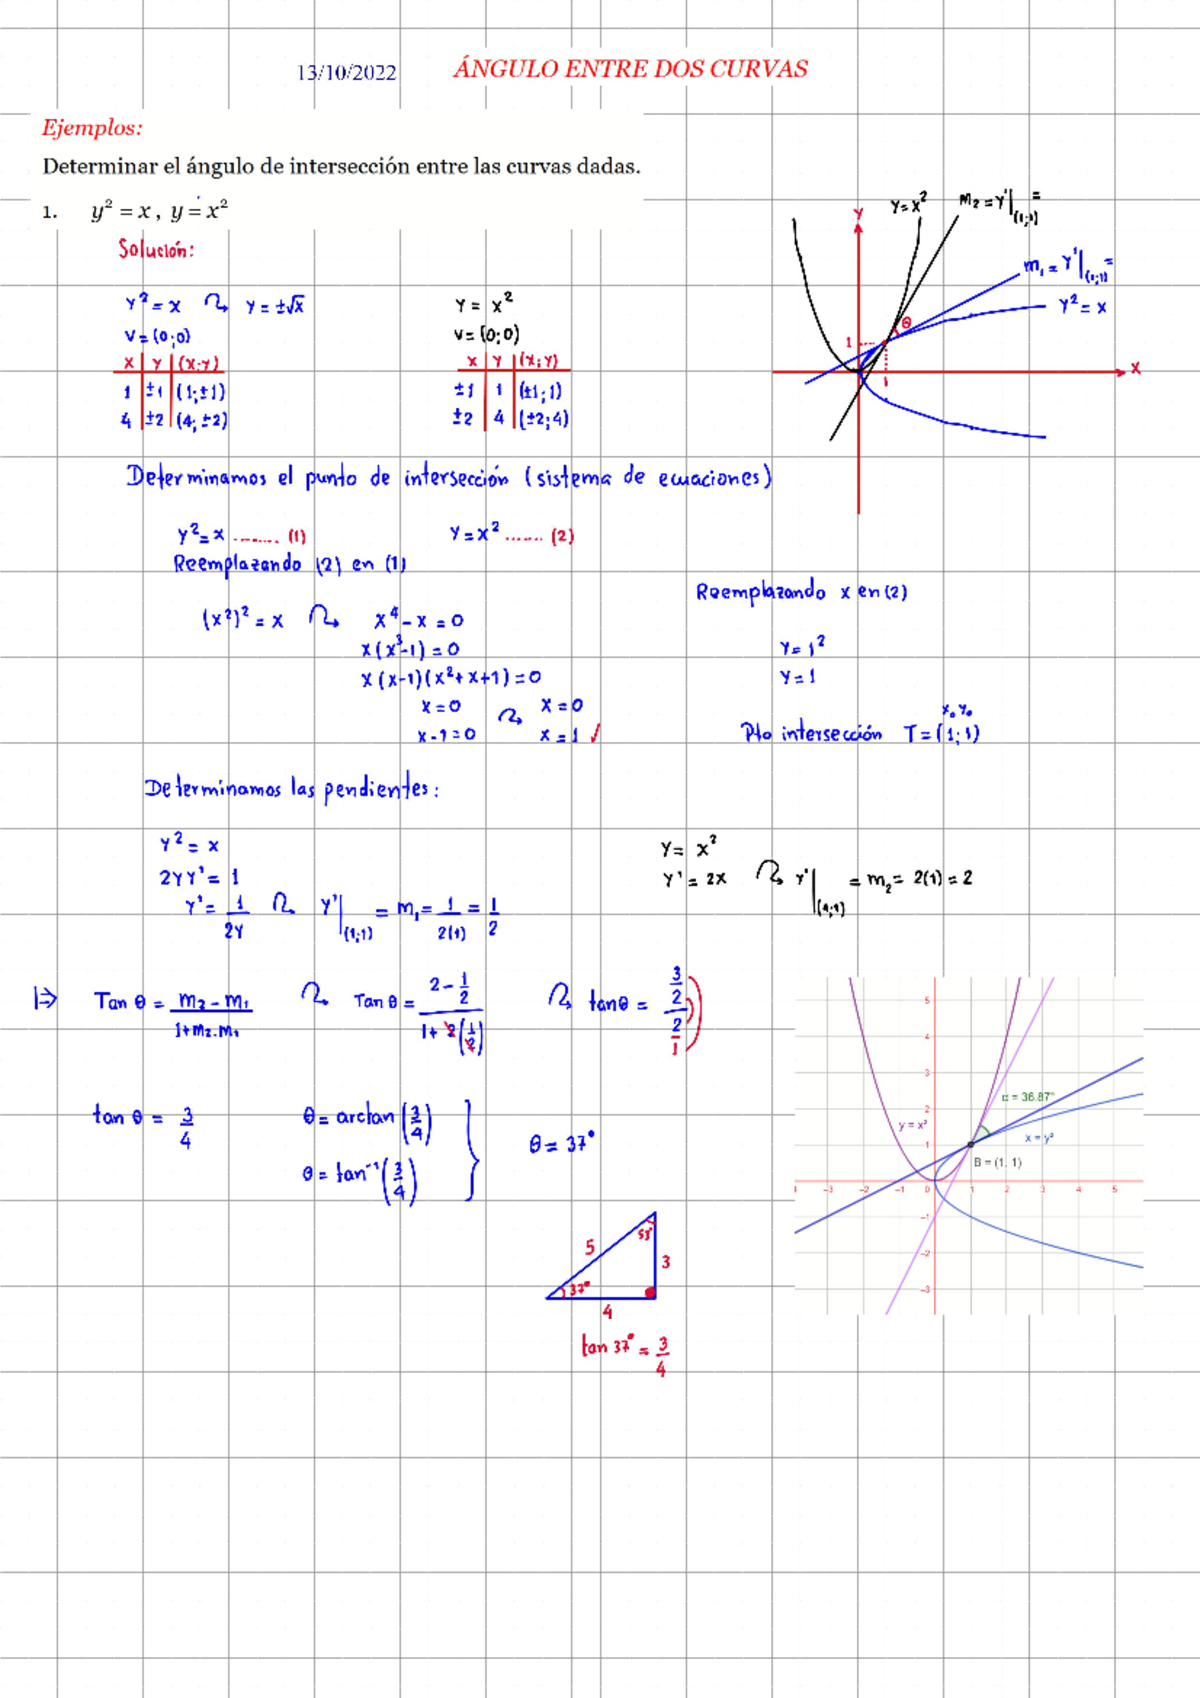 13/10/2022 ÁNGULO ENTRE DOS CURVAS
Ejemplos:
Determinar el ángulo de intersección entre las curvas dadas.
1. y² = x , y = x²
Solución:
y² = x y = ±√x
V = (0;0)
x y (x;y)
1 ±1 (1;±1)
4 ±2 (4;±2)
y = x²
V = (0;0)
x y (x;y)
±1 1 (±1;1)
±2 4 (±2;4)
y
y = x²
m₂ = y'|(1;1) =
m₁ = y'|(1;1) =
y² = x
θ
1
x
1
Determinamos el punto de intersección (sistema de ecuaciones)
y² = x ........ (1) y = x² ....... (2)
Reemplazando (2) en (1)
(x²)² = x x⁴ - x = 0
x(x³-1) = 0
x(x-1)(x²+x+1) = 0
x = 0 x = 0
x-1 = 0 x = 1 ✓
Reemplazando x en (2)
y = 1²
y = 1
x₀ y₀
Pto intersección T = (1;1)
Determinamos las pendientes:
y² = x
2yy' = 1
y' = 1/2y y'|(1;1) = m₁ = 1/2(1) = 1/2
y = x²
y' = 2x y'|(1;1) = m₂ = 2(1) = 2
|⇒ Tan θ = (m₂ - m₁)/(1+m₂.m₁) Tan θ = (2 - 1/2)/(1+ 2(1/2)) tan θ = (3/2)/(2/1)
tan θ = 3/4 θ = arctan(3/4)
θ = tan⁻¹(3/4)
θ = 37°
5
53°
3
37°
4
tan 37° = 3/4
5
4
3
2
1
α = 36.87°
y = x²
x = y²
B = (1, 1)
-3 -2 -1 0 1 2 3 4 5
-1
-2
-3